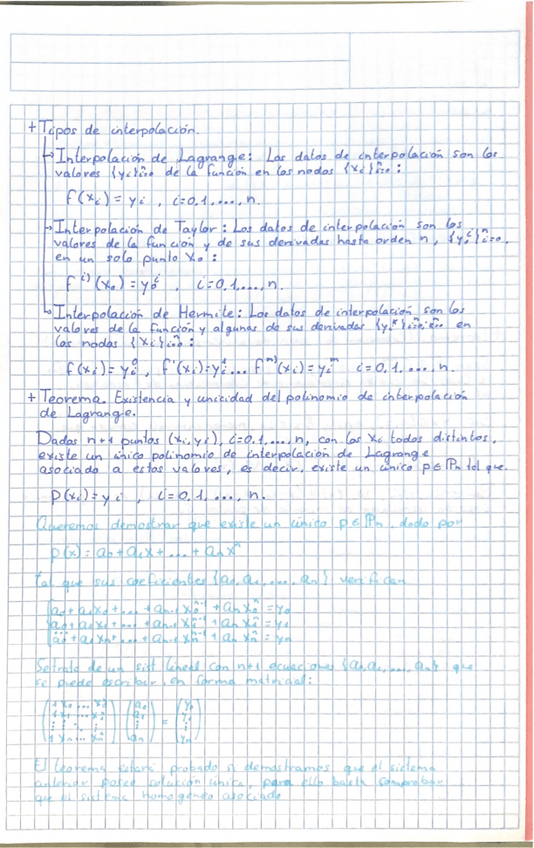 + Tipos de interpolación.
Interpolación de Lagrange: Los datos de interpolación son los
valores {yi}ⁿi=0 de la función en los nodos {xi}ⁿi=0 :
f(xi) = yi , i=0,1,...,n.
Interpolación de Taylor: Los datos de interpolación son los
valores de la función y de sus derivadas hasta orden n, {y₀ⁱ}ⁿi=0,
en un solo punto x₀ :
f⁽ⁱ⁾(x₀) = y₀ⁱ , i=0,1,...,n.
Interpolación de Hermite: Los datos de interpolación son los
valores de la función y algunas de sus derivadas en
los nodos {xi}ⁿi=0 :
f(xi) = yi⁰ , f'(xi)=yi¹ ... fᵐ⁾(xi) = yiᵐ i=0,1,...,n.
+ Teorema. Existencia y unicidad del polinomio de interpolación
de Lagrange.
Dados n+1 puntos (xi,yi), i=0,1,...,n, con los xi todos distintos,
existe un único polinomio de interpolación de Lagrange
asociado a estos valores, es decir, existe un único p∈ℙn tal que.
p(xi) = yi , i=0,1,...,n.
Queremos demostrar que existe un único p∈ℙn dado por
p(x) = a₀+a₁x+...+anxⁿ
tal que sus coeficientes {a₀,a₁,...,an} verifican
a₀+a₁x₀+...+an-1x₀ⁿ⁻¹+anx₀ⁿ = y₀
a₀+a₁x₁+...+an-1x₁ⁿ⁻¹+anx₁ⁿ = y₁
...
a₀+a₁xn+...+an-1xnⁿ⁻¹+anxnⁿ = yn
Se trata de un sist lineal con n+1 ecuaciones {a₀,a₁,...,an} que
se puede escribir en forma matricial:
(1 x₀ ... x₀ⁿ) (a₀) (y₀)
(1 x₁ ... x₁ⁿ) (a₁) = (y₁)
(⋮ ⋮ ⋱ ⋮) (⋮) (⋮)
(1 xn ... xnⁿ) (an) (yn)
El teorema estará probado si demostramos que el sistema
anterior posee solución única, para ello basta comprobar
que el sistema homogéneo asociado